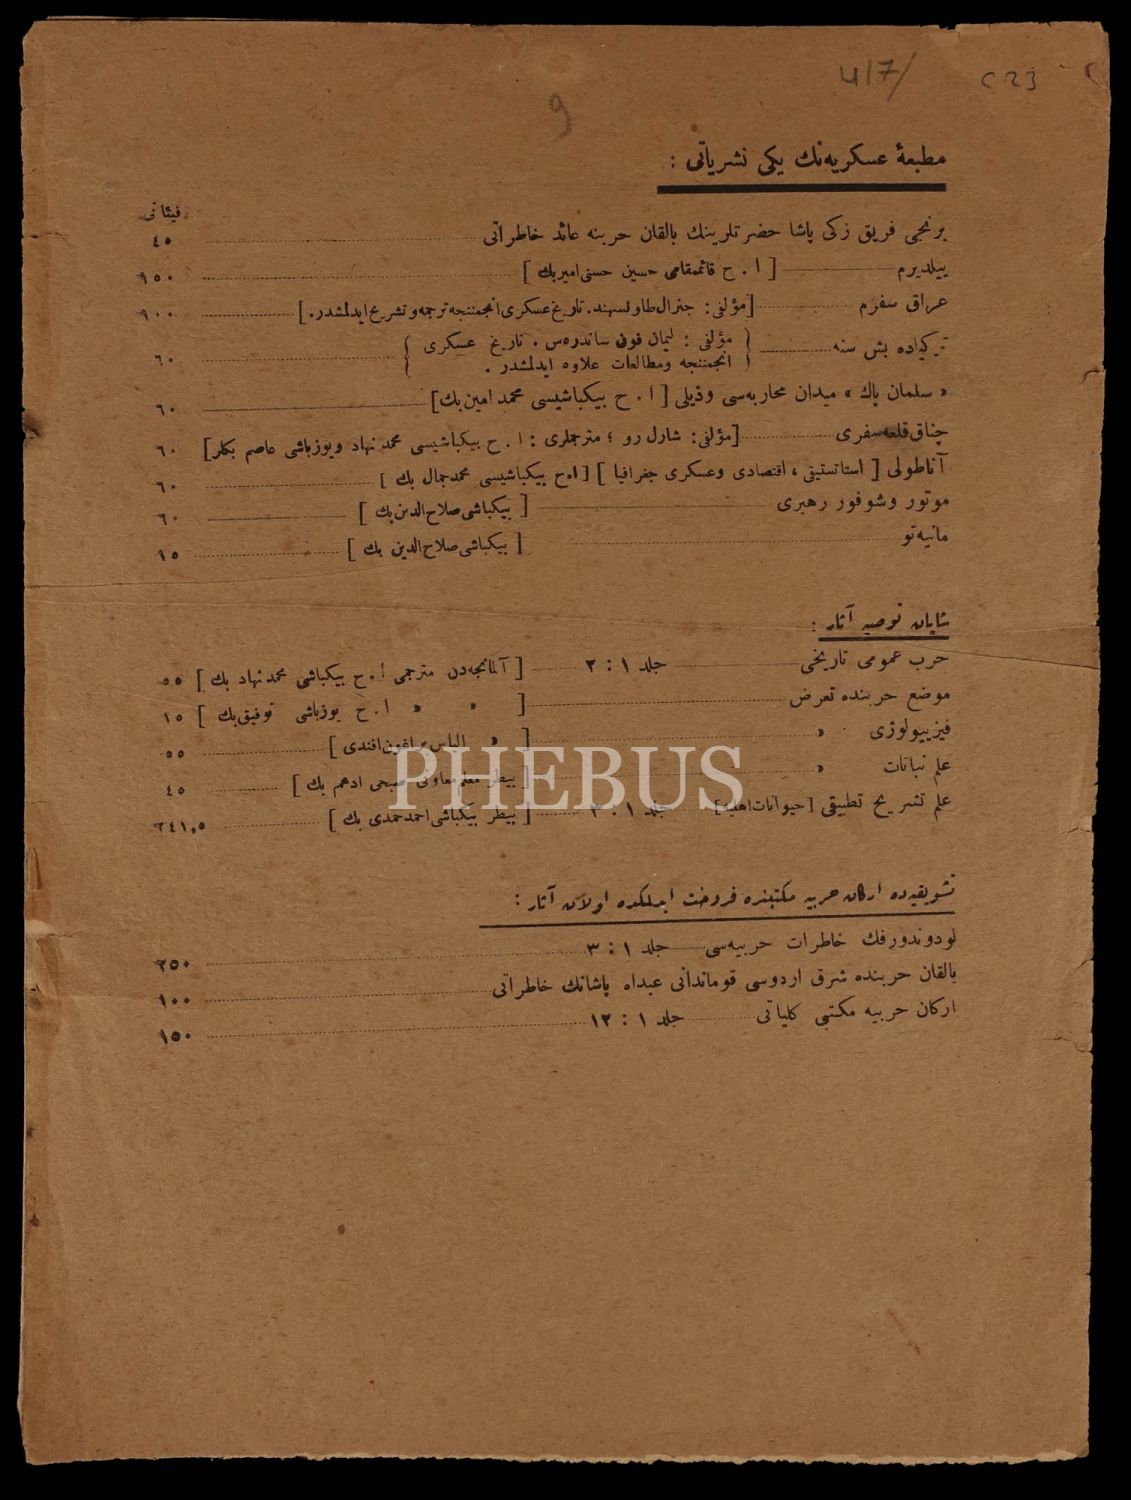 417/
C23
9
مطبعهٔ عسكريه‌نك يكی نشرياتی :
فيئاتی
برنجی فريق زكی پاشا حضرتلرينك بالقان حربنه عائد خاطراتی ٤٥
ييلديرم [ ا . ح قائممقامی حسين حسنی امير بك ] ١٥٠
عراق سفرم [ مؤلفی : جنرال طاونسهند . تاريخ عسكری انجمننجه ترجمه و تشريح ايدلمشدر . ] ١٠٠
تركياده بش سنه { مؤلفی : ليمان فون ساندره‌س . تاريخ عسكری
انجمننجه ومطالعات علاوه ايدلمشدر . } ٦٠
« سلمان پاك » ميدان محاربه‌سی وذيلی [ ا . ح بيكباشيسی محمد امين بك ] ٦٠
چناق قلعه سفری [ مؤلفی : شارل رو ؛ مترجملری : ا . ح بيكباشيسی محمد نهاد ويوزباشی عاصم بكلر ] ٦٠
آناطولی [ استاتستيقی ، اقتصادی وعسكری جغرافيا ] [ ا.ح بيكباشيسی محمد جمال بك ] ٦٠
موتور وشوفور رهبری [ بيكباشی صلاح الدين بك ] ٦٠
مانيه‌تو [ بيكباشی صلاح الدين بك ] ١٥
شايان توصيه آثار :
حرب عمومی تاريخی جلد ١ : ٢ [ آلمانجه‌دن مترجمی ا . ح بيكباشی محمد نهاد بك ] ٥٥
موضع حربنده تعرض [ » » ا . ح يوزباشی توفيق بك ] ١٥
فيزييولوژی » [ » الياس براغون افندی ] ٥٥
علم نباتات » [ بيطر معلم معاونی صبحی ادهم بك ] ٤٥
علم تشريح تطبيقی [ حيوانات اهليه ] جلد ١ : ٣ [ بيطر بيكباشی احمد حمدی بك ] ٢٤١,٥
تشويقيه‌ده اركان حربيه مكتبنده فروخت ايدلمكده اولان آثار :
لودوندورفك خاطرات حربيه‌سی جلد ١ : ٣ ٢٥٠
بالقان حربنده شرق اردوسی قوماندانی عبدالله پاشانك خاطراتی ١٠٠
اركان حربيه مكتبی كلياتی جلد ١ : ١٢ ١٥٠
PHEBUS